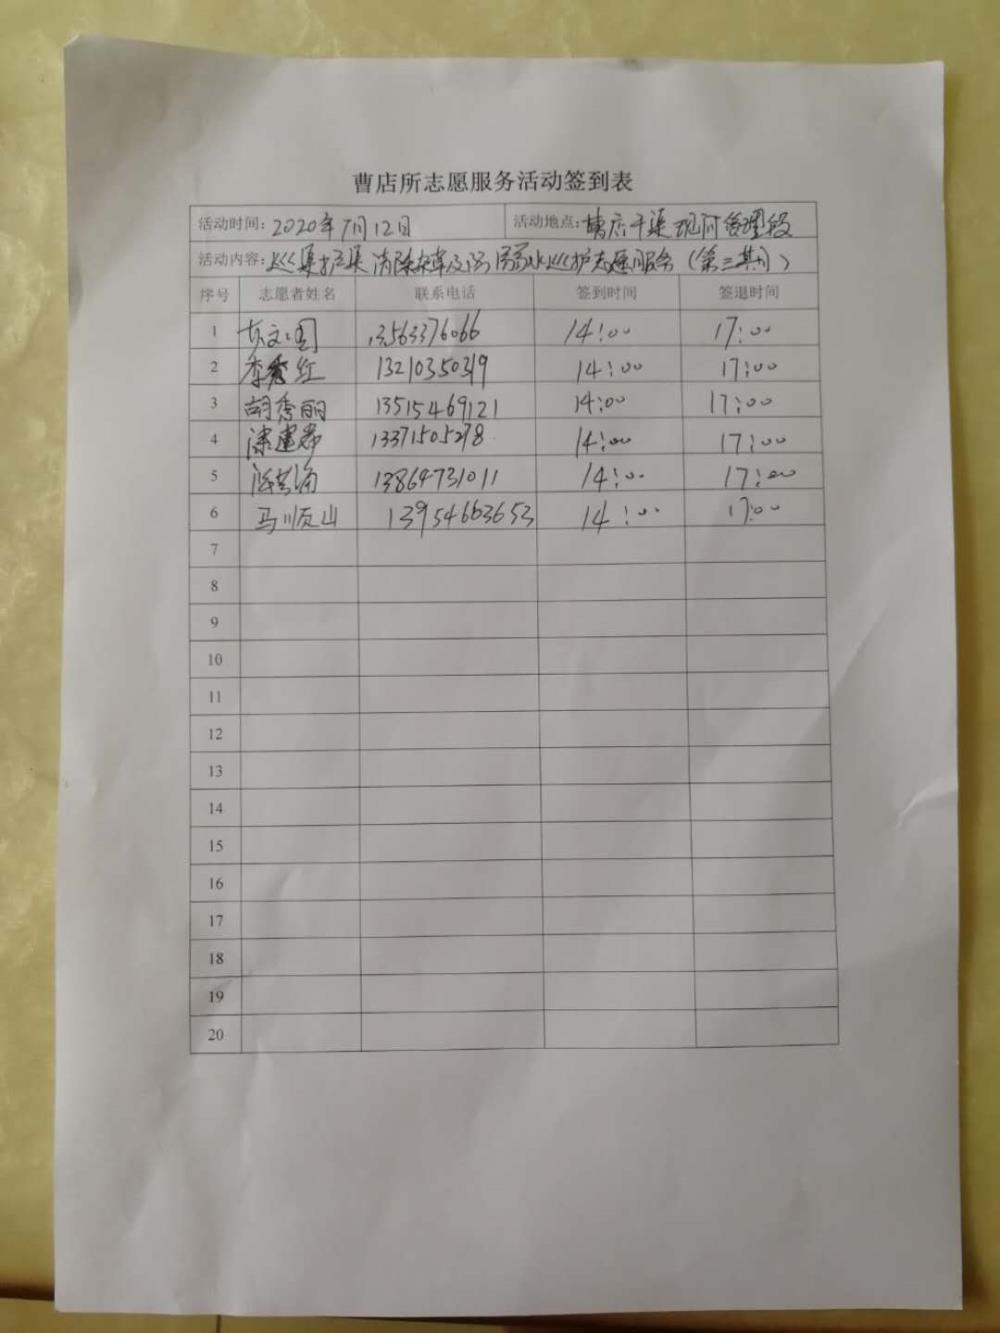 曹店所志愿服务活动签到表
活动时间: 2020年7月12日 活动地点: 曹店干渠 管理段
活动内容: 巡渠护渠 清除杂草及 巡护志愿服务(第三期)
序号 志愿者姓名 联系电话 签到时间 签退时间
1 13563376066 14:00 17:00
2 李秀红 13210350319 14:00 17:00
3 胡秀丽 13515469121 14:00 17:00
4 13371505278 14:00 17:00
5 13864731011 14:00 17:00
6 马顺山 13954663653 14:00 17:00
7
8
9
10
11
12
13
14
15
16
17
18
19
20